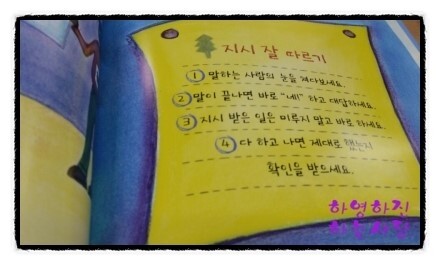 지시 잘 따르기
① 말하는 사람의 눈을 쳐다보세요.
② 말이 끝나면 바로 "네!" 하고 대답하세요.
③ 지시 받은 일은 미루지 말고 바로 하세요.
④ 다 하고 나면 제대로 했는지
확인을 받으세요.
하영하진